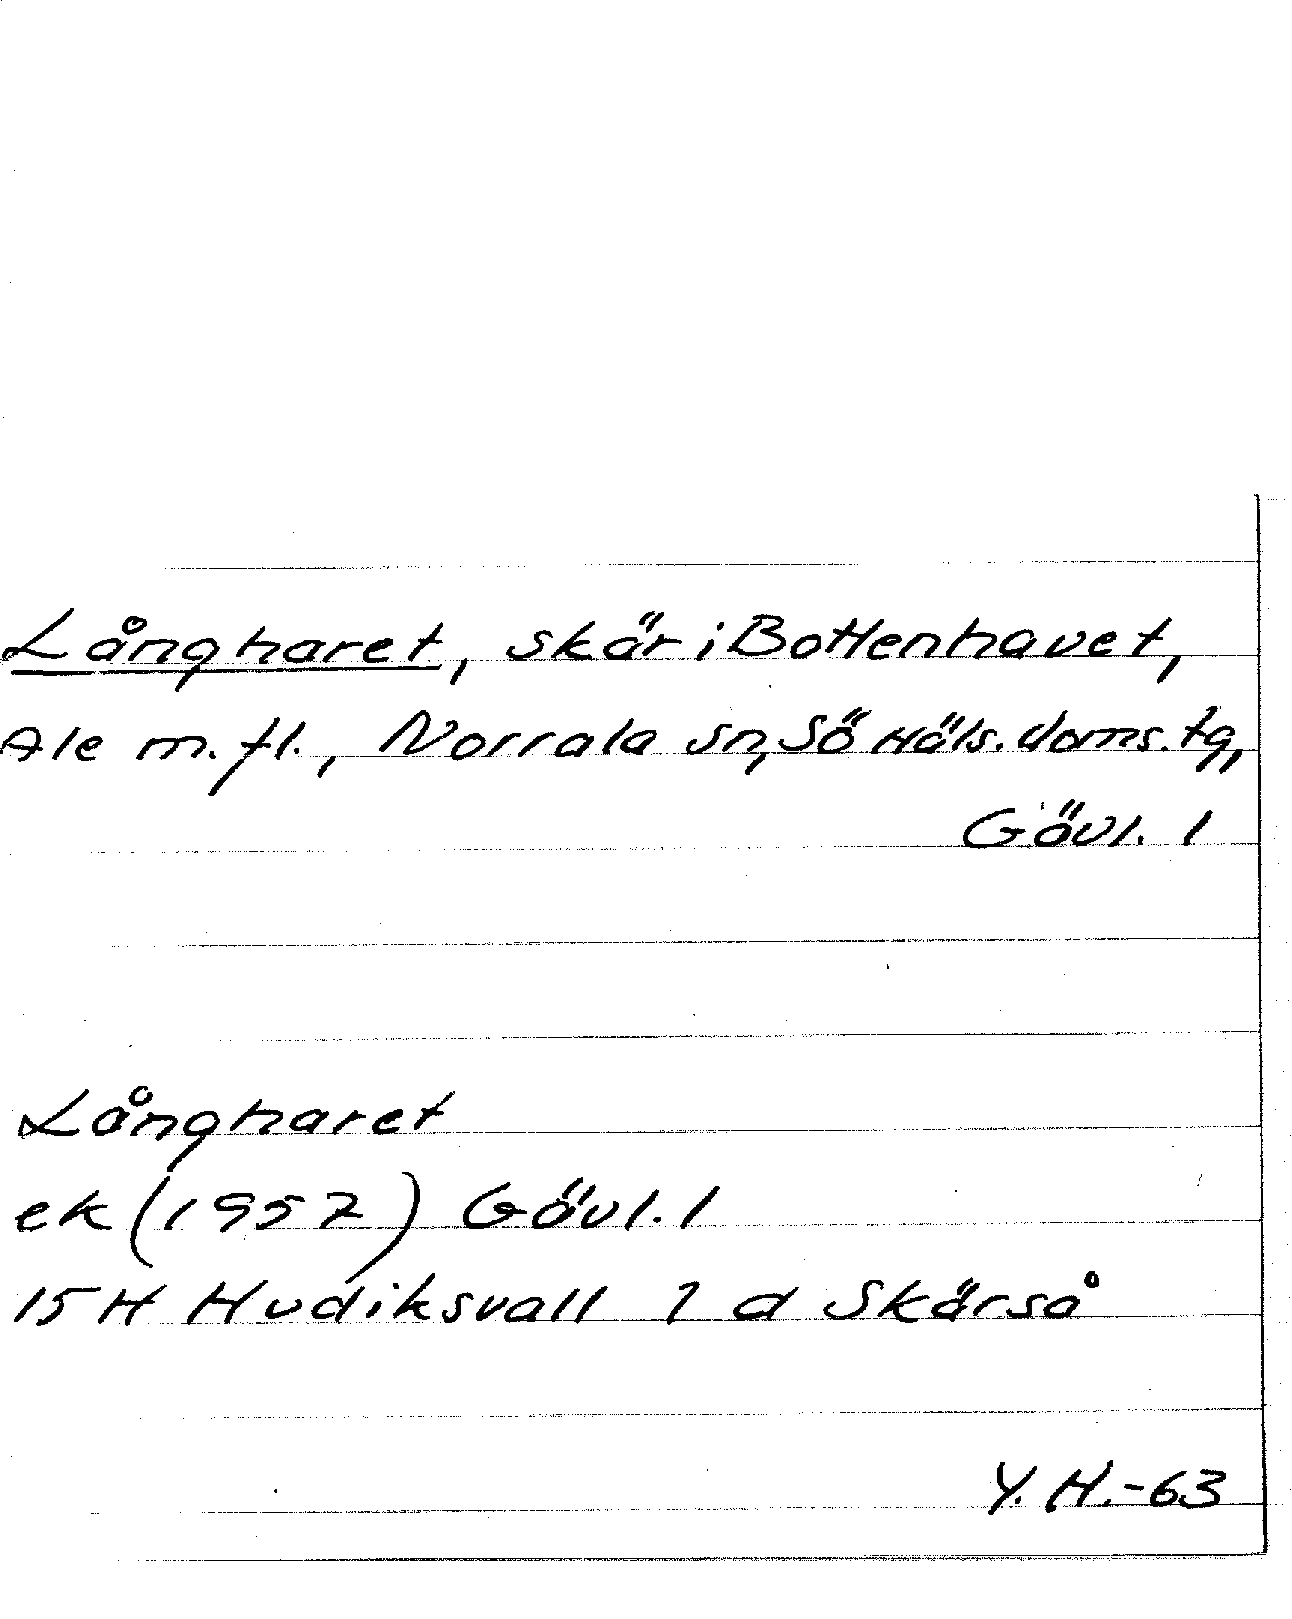 Långharet, skär i Bottenhavet,
Ale m.fl., Norrala sn, Sö Häls. doms. tg,
Gävl. l
Långharet
ek (1957) Gävl. l
15H Hudiksvall 1 d Skärså
Y. H.-63